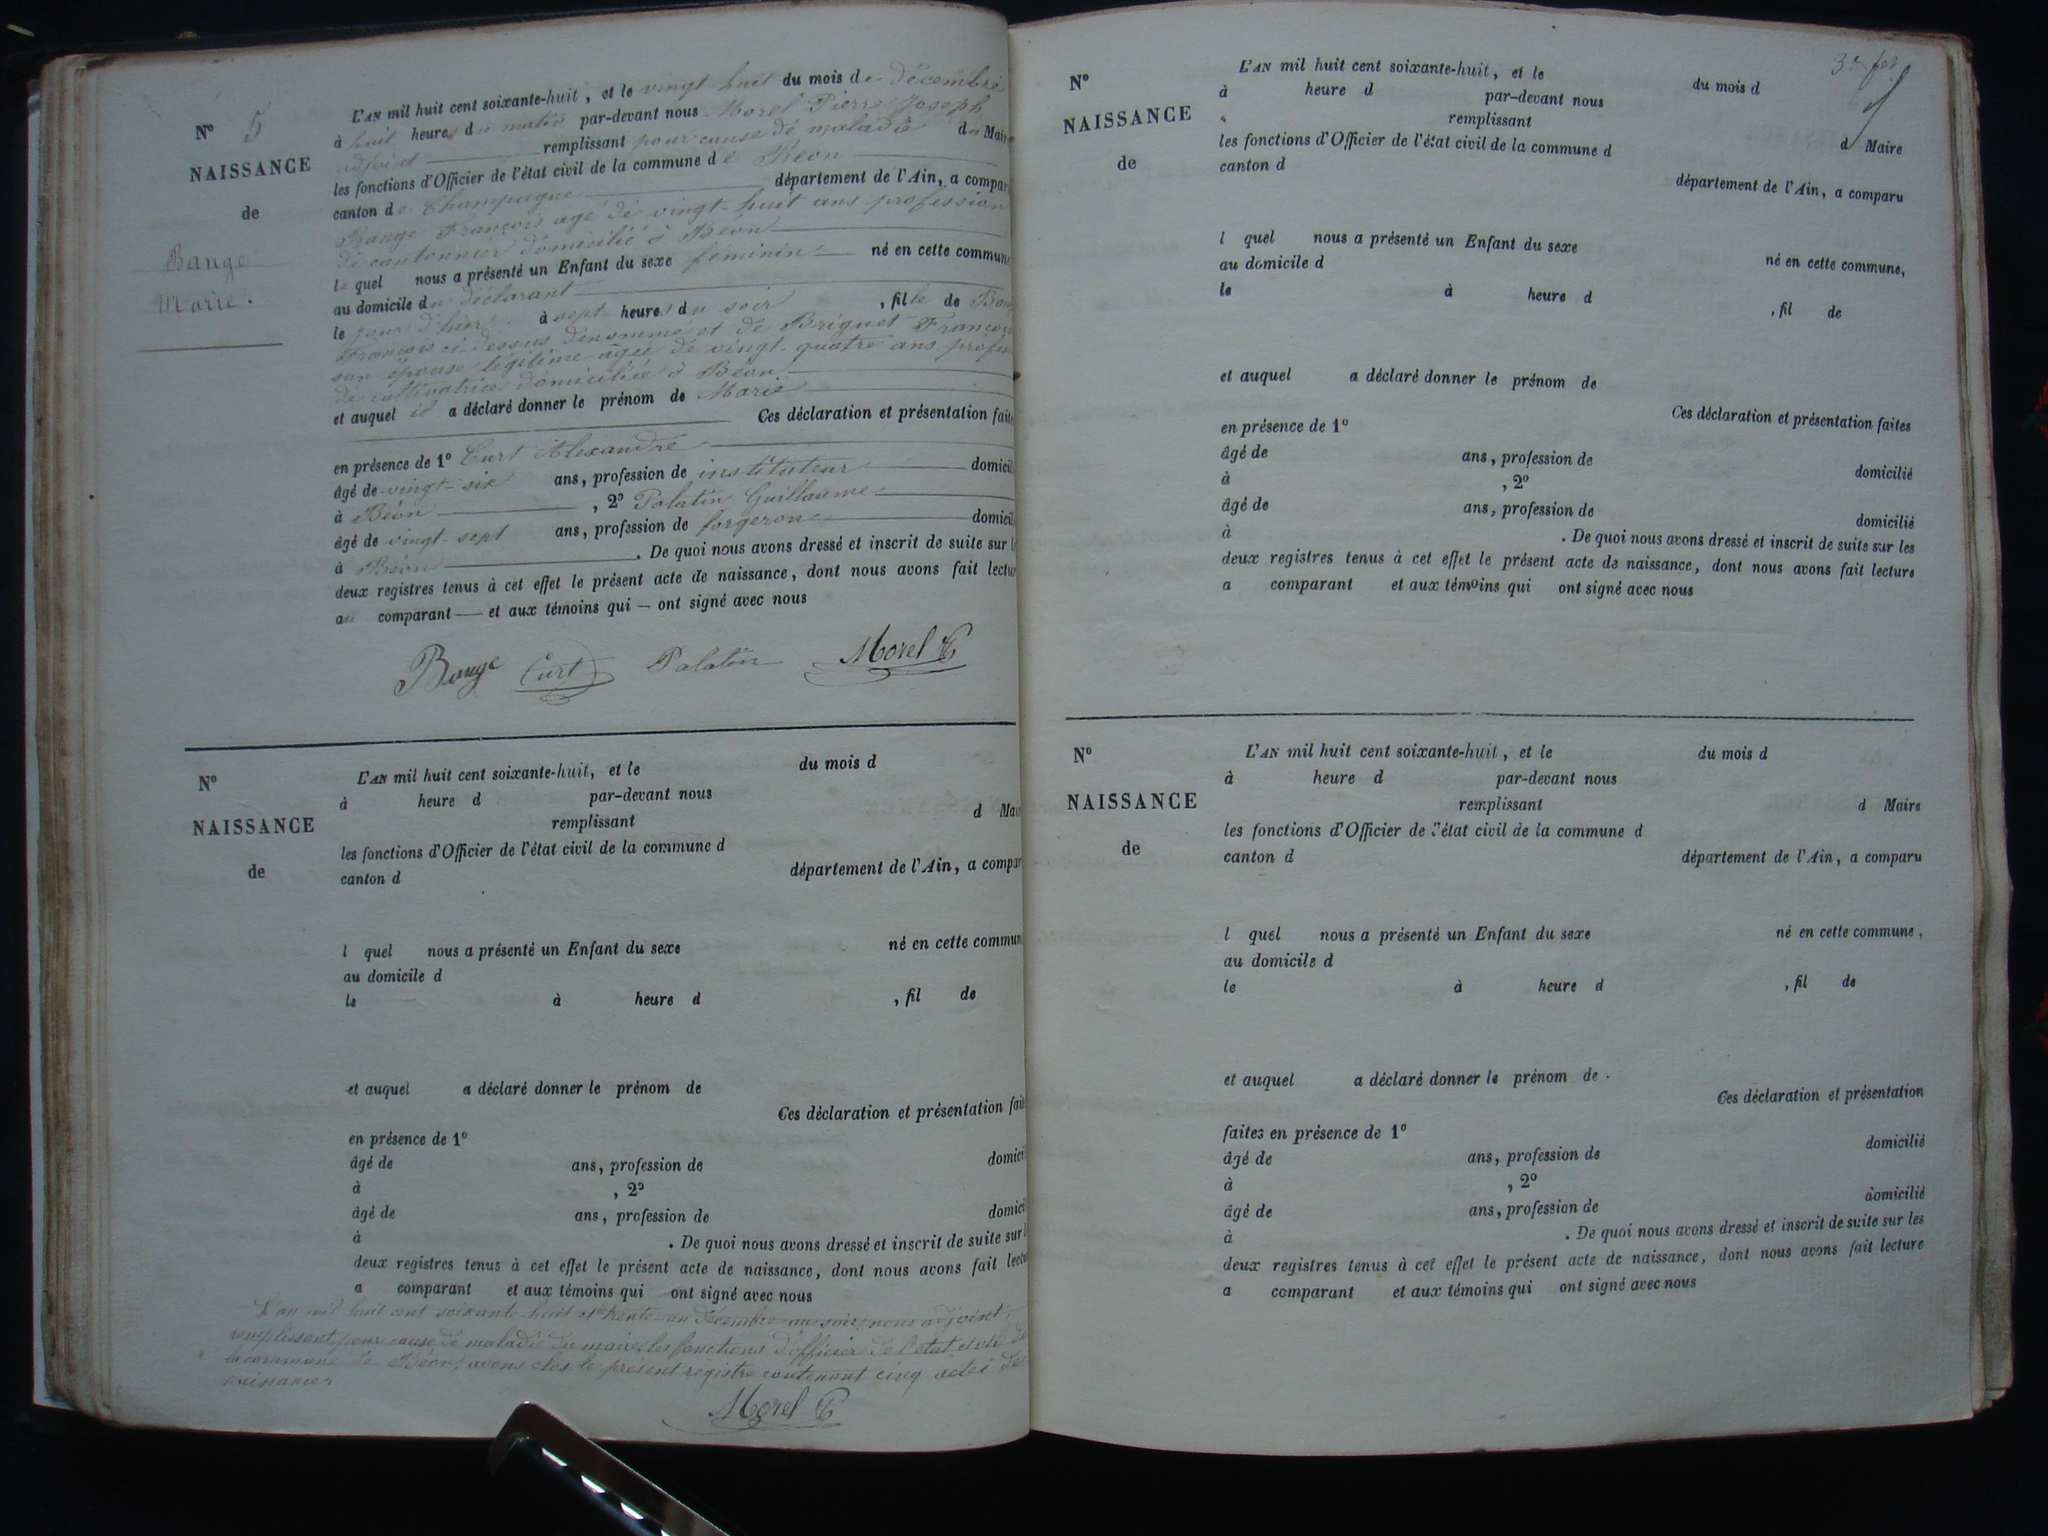 N° 5
NAISSANCE
de
Bange
Marie.
L'AN mil huit cent soixante-huit, et le vingt huit du mois de décembre
à huit heures du matin par-devant nous Morel Pierre Joseph
adjoint remplissant pour cause de maladie du Maire
les fonctions d'Officier de l'état civil de la commune de Béon
canton de Champagne département de l'Ain, a compar
Bange François agé de vingt-huit ans profession
de cantonnier domicilié à Béon
le quel nous a présenté un Enfant du sexe féminin né en cette commune
au domicile du déclarant
le jour d'hier à sept heures du soir , fille de Ban
François ci-dessus dénommé et de Briguet Françoi
son épouse légitime âgée de vingt-quatre ans profes
de cultivatrice domiciliée à Béon
et auquel il a déclaré donner le prénom de Marie
Ces déclaration et présentation faite
en présence de 1° Curt Alexandre
âgé de vingt-six ans, profession de instituteur domicil
à Béon , 2° Palatin Guillaume
âgé de vingt-sept ans, profession de forgeron domicil
à Béon . De quoi nous avons dressé et inscrit de suite sur l
deux registres tenus à cet effet le présent acte de naissance, dont nous avons fait lectur
au comparant et aux témoins qui ont signé avec nous
Bange Curt Palatin Morel P
N°
NAISSANCE
de
L'AN mil huit cent soixante-huit, et le du mois d
à heure d par-devant nous
remplissant d Mair
les fonctions d'Officier de l'état civil de la commune d
canton d département de l'Ain, a compar
l quel nous a présenté un Enfant du sexe né en cette commun
au domicile d
le à heure d , fil de
et auquel a déclaré donner le prénom de
Ces déclaration et présentation fait
en présence de 1°
âgé de ans, profession de domicil
à , 2°
âgé de ans, profession de domicil
à . De quoi nous avons dressé et inscrit de suite sur l
deux registres tenus à cet effet le présent acte de naissance, dont nous avons fait lectu
a comparant et aux témoins qui ont signé avec nous
L'an mil huit cent soixante-huit et trente-un décembre au soir, nous adjoint,
remplissant pour cause de maladie du maire, les fonctions d'officier de l'état civil de
la commune de Béon, avons clos le présent registre contenant cinq actes de
naissances
Morel P
3e fer
N°
NAISSANCE
de
L'AN mil huit cent soixante-huit, et le du mois d
à heure d par-devant nous
remplissant d Maire
les fonctions d'Officier de l'état civil de la commune d
canton d département de l'Ain, a comparu
l quel nous a présenté un Enfant du sexe né en cette commune,
au domicile d
le à heure d , fil de
et auquel a déclaré donner le prénom de
Ces déclaration et présentation faites
en présence de 1°
âgé de ans, profession de domicilié
à , 2°
âgé de ans, profession de domicilié
à . De quoi nous avons dressé et inscrit de suite sur les
deux registres tenus à cet effet le présent acte de naissance, dont nous avons fait lecture
a comparant et aux témoins qui ont signé avec nous
N°
NAISSANCE
de
L'AN mil huit cent soixante-huit, et le du mois d
à heure d par-devant nous
remplissant d Maire
les fonctions d'Officier de l'état civil de la commune d
canton d département de l'Ain, a comparu
l quel nous a présenté un Enfant du sexe né en cette commune,
au domicile d
le à heure d , fil de
et auquel a déclaré donner le prénom de
Ces déclaration et présentation
faites en présence de 1°
âgé de ans, profession de domicilié
à , 2°
âgé de ans, profession de domicilié
à . De quoi nous avons dressé et inscrit de suite sur les
deux registres tenus à cet effet le présent acte de naissance, dont nous avons fait lecture
a comparant et aux témoins qui ont signé avec nous